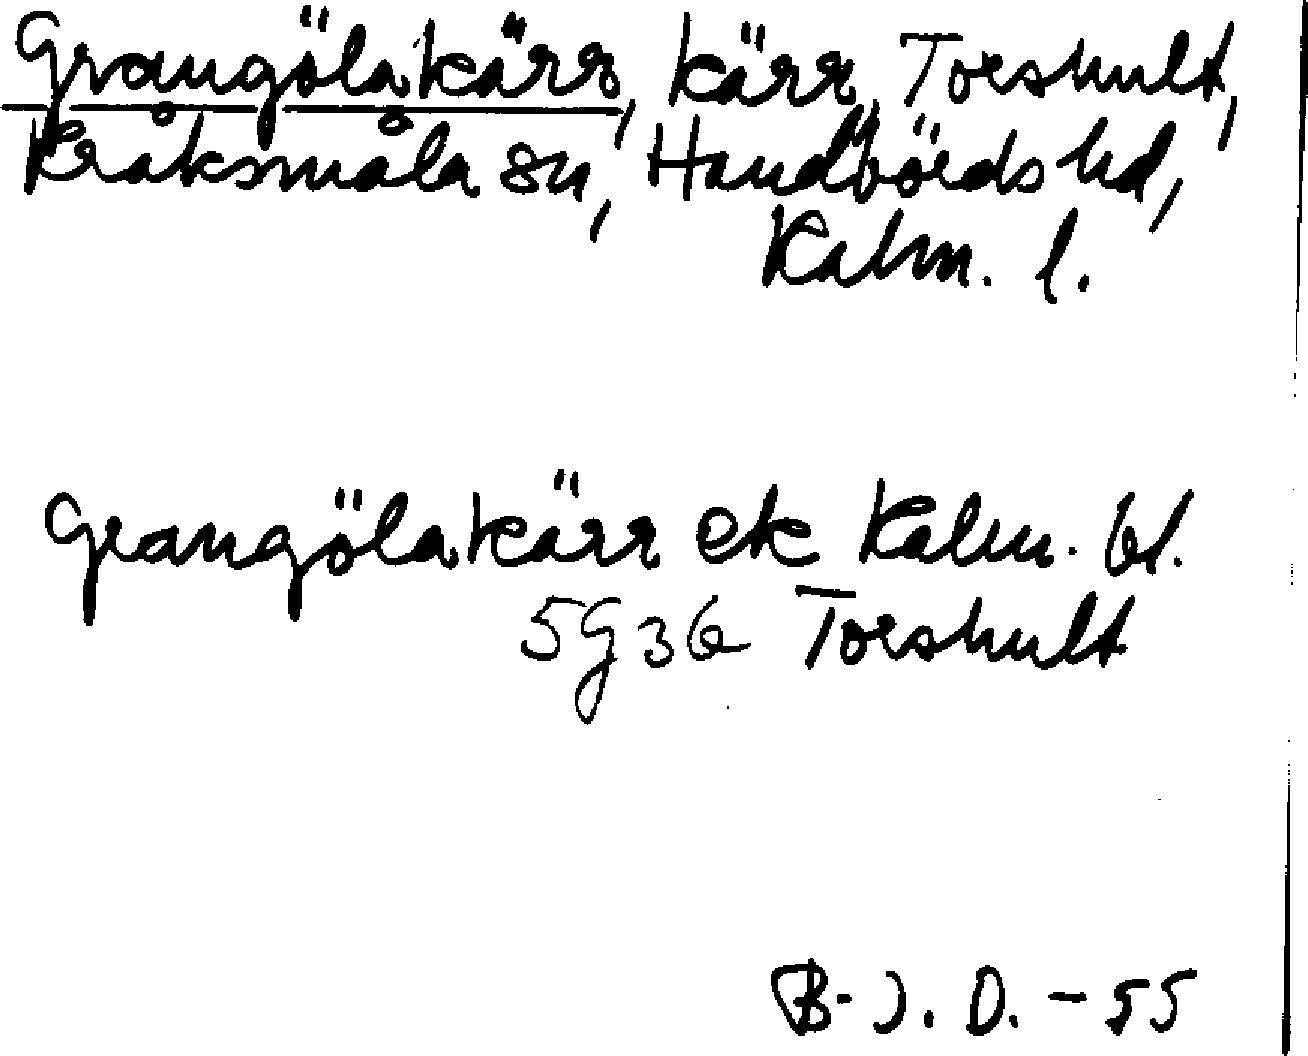 Grangölakärr, kärr, Torshult,
Kråksmåla sn, Handbörds hd,
Kalm. l.
Grangölakärr ek Kalm. bl.
5G3G Torshult
B. J. D. - 55